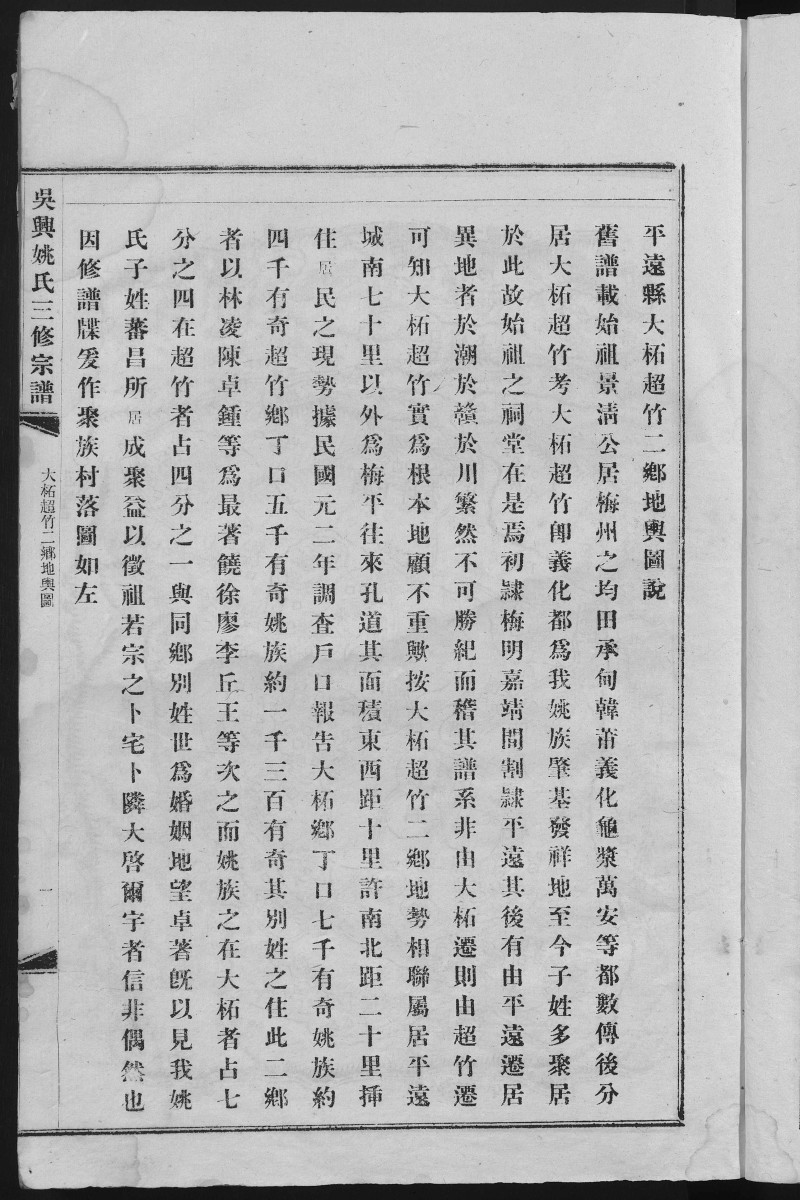 平遠縣大柘超竹二鄉地輿圖說
舊譜載始祖景清公居梅州之均田承甸韓莆義化龜漿萬安等都數傳後分
居大柘超竹考大柘超竹卽義化都爲我姚族肇基發祥地至今子姓多聚居
於此故始祖之祠堂在是焉初隸梅明嘉靖間割隸平遠其後有由平遠遷居
異地者於潮於贛於川繁然不可勝紀而稽其譜系非由大柘遷則由超竹遷
可知大柘超竹實爲根本地顧不重歟按大柘超竹二鄉地勢相聯屬居平遠
城南七十里以外爲梅平往來孔道其面積東西距十里許南北距二十里揷
住居民之現勢據民國元二年調查戶口報告大柘鄉丁口七千有奇姚族約
四千有奇超竹鄉丁口五千有奇姚族約一千三百有奇其別姓之住此二鄉
者以林凌陳卓鍾等爲最著饒徐廖李丘王等次之而姚族之在大柘者占七
分之四在超竹者占四分之一與同鄉別姓世爲婚姻地望卓著旣以見我姚
氏子姓蕃昌所居成聚益以徵祖若宗之卜宅卜隣大啓爾宇者信非偶然也
因修譜牒爰作聚族村落圖如左
吳興姚氏三修宗譜
大柘超竹二鄉地輿圖
一